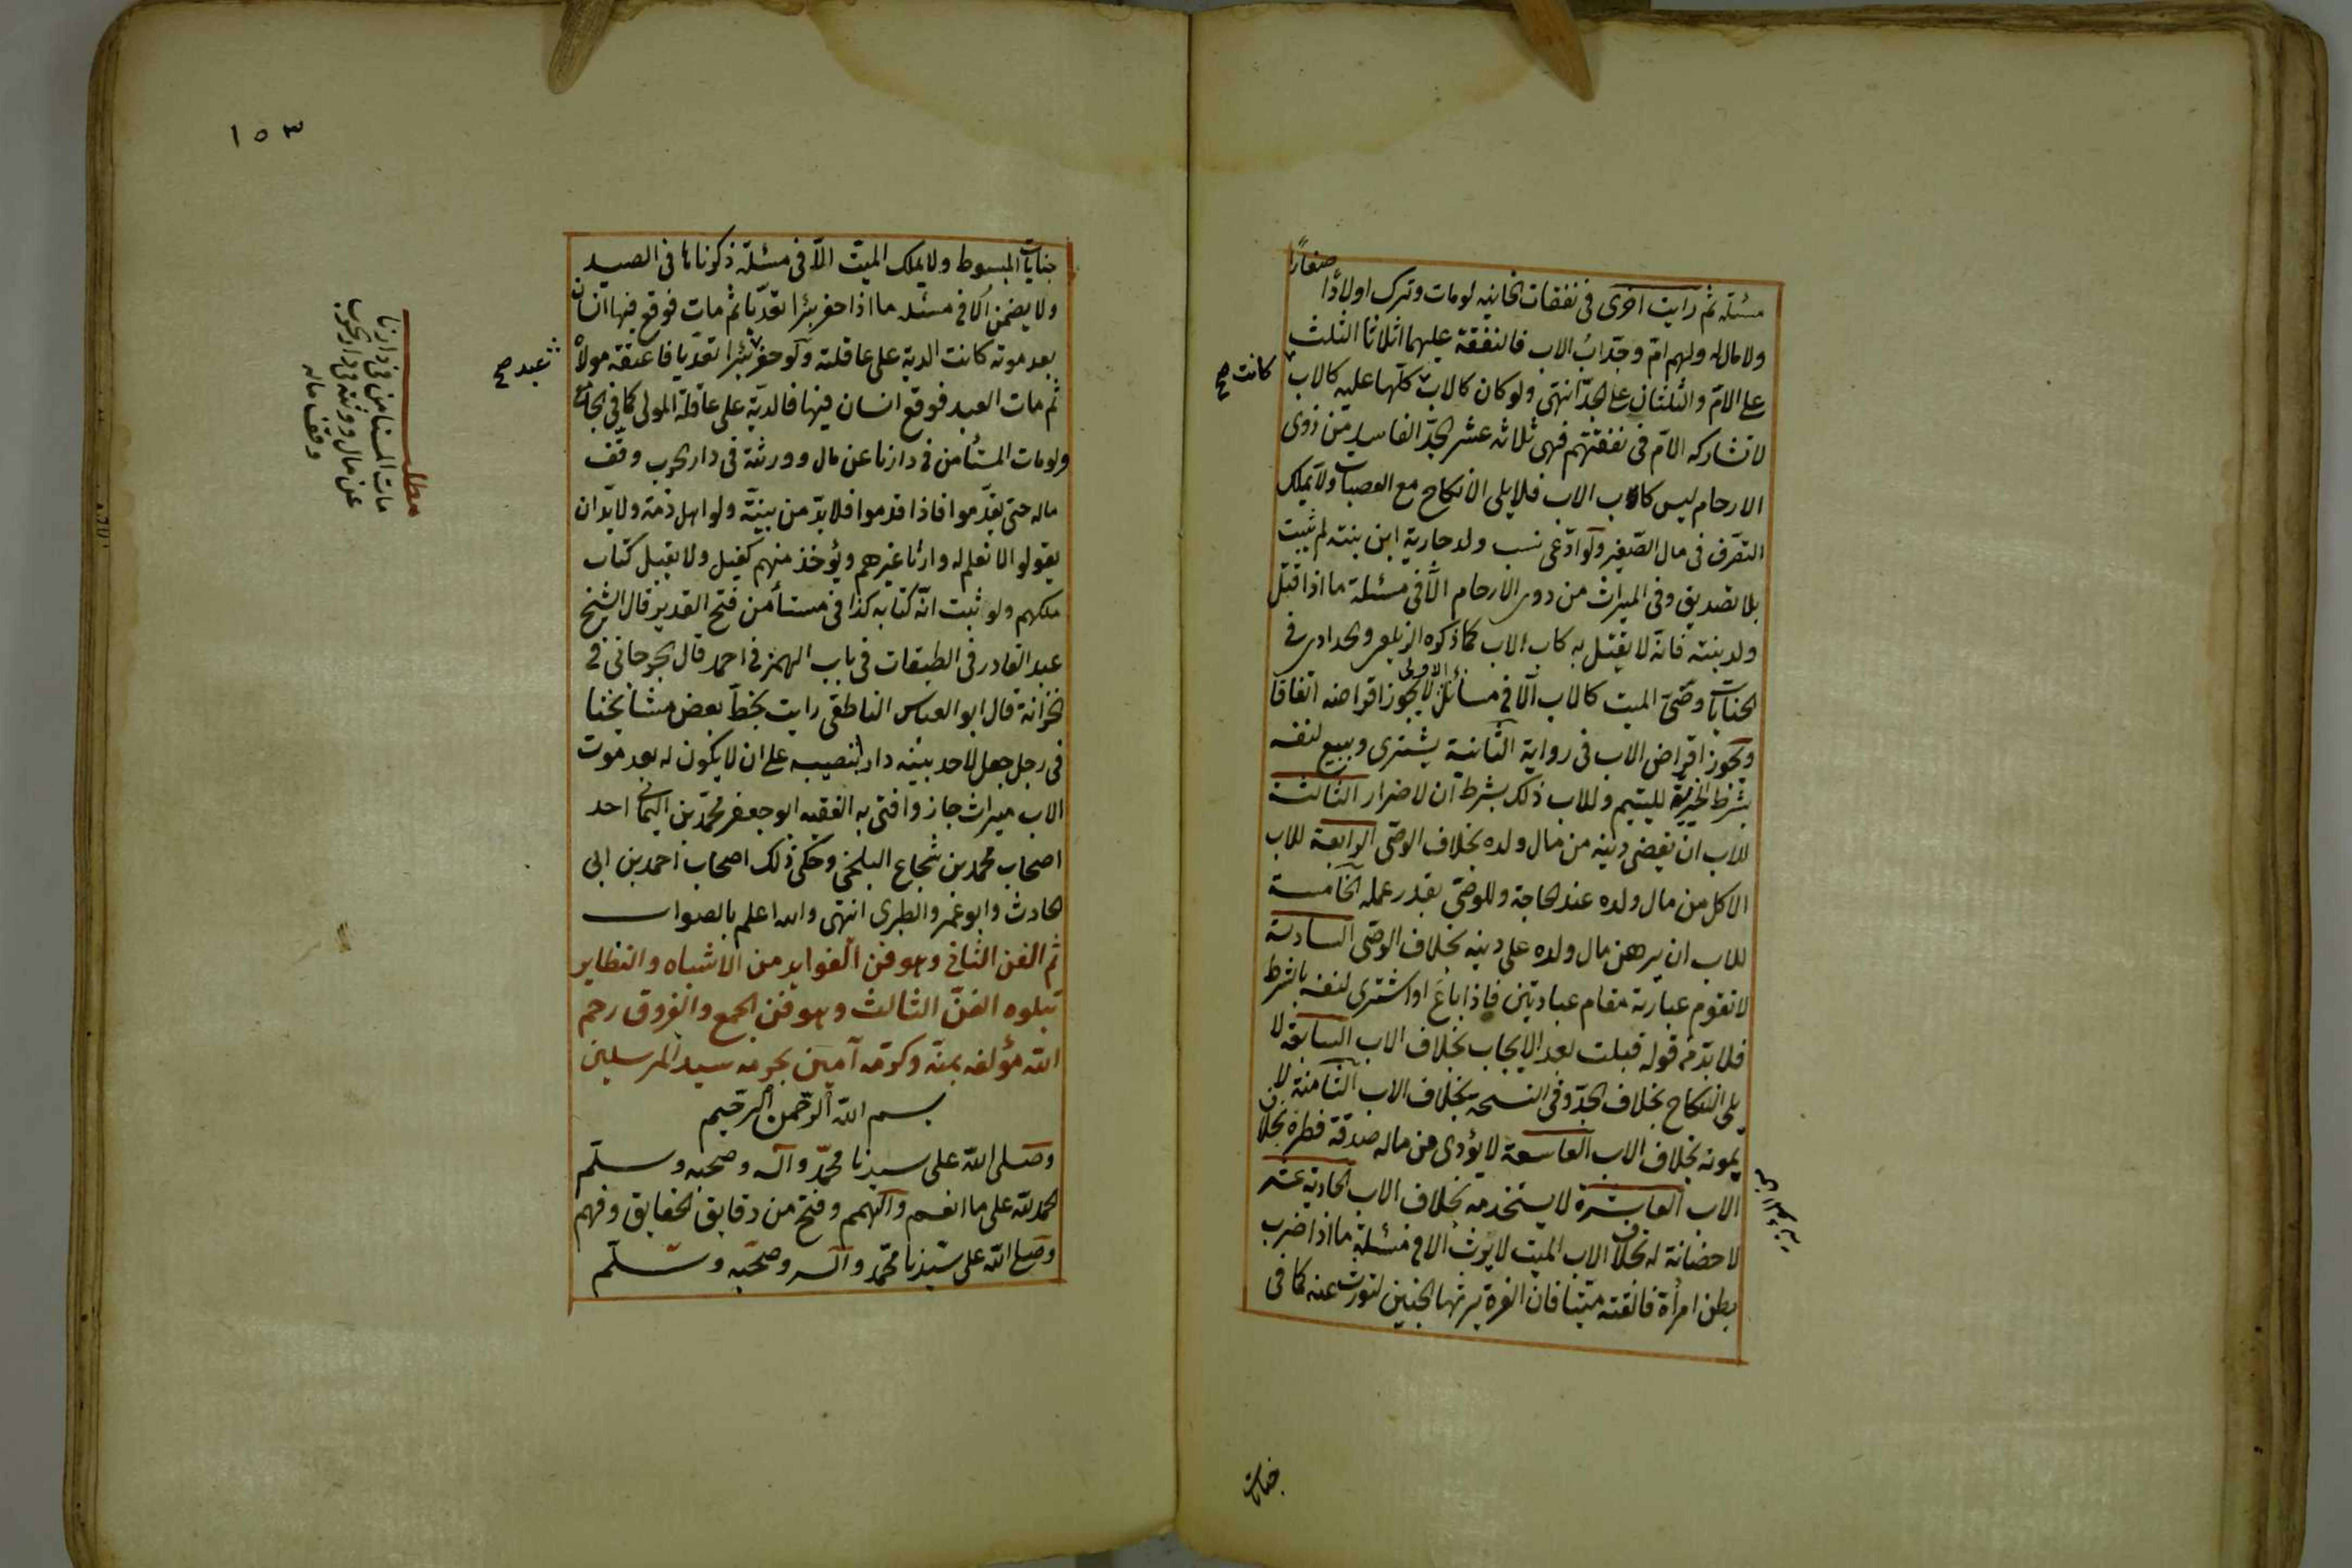 مسئلة ثم رايت اخرى فى نفقات الخانيه لو مات وترك اولادًا صغارًا
ولا مال له ولهم ام وجدّ اب الاب فالنفقة عليهما اثلاثا الثلث
على الامّ والثلثان على الجدّ انتهى ولو كان كالاب كلّها عليه كالاب
كانت صح
لا تشاركه الامّ فى نفقتهم فهى ثلاثه عشر الجدّ الفاسد من ذوى
الارحام ليس كاب الاب فلا يلى الانكاح مع العصبات ولا يملك
التصرّف فى مال الصّغير ولو ادّعى نسب ولد جارية ابن بنته لم يثبت
بلا تصديق وفى الميراث من ذوى الارحام الّا فى مسئلة ما اذا قتل
ولد بنته فانّه لا يقتل به كاب الاب كما ذكره الزيلعى والحدادى فى
الجنايات وصّى الميت كالاب الّا فى مسائل الاولى لا يجوز اقراضه اتفاقا
ويجوز اقراض الاب فى رواية الثّانية يشترى ويبيع لنفسه
بشرط الخيرية لليتيم وللاب ذلك بشرط ان لا ضرار الثالثة
للاب ان يقضى دينه من مال ولده بخلاف الوصّى الرابعة للاب
الاكل من مال ولده عند الحاجة وللوصّى بقدر عمله الخامسة
للاب ان يرهن مال ولده على دينه بخلاف الوصّى السادسة
لا تقوم عبارته مقام عبارتين فاذا باع او اشترى لنفسه بالشرط
فلا بدّ من قوله قبلت بعد الايجاب بخلاف الاب السابعة لا
يلى النكاح بخلاف الجدّ وفى النسخه بخلاف الاب الثامنة لا
يمونه بخلاف الاب التاسعة لا يؤدى من ماله صدقة فطره بخلاف
الاب العاشرة لا يستخدمه بخلاف الاب الحادية عشر
لا حضانة له بخلاف الاب الميت لا يورث الا فى مسئلة ما اذا ضرب
بطن امرأة فالقته ميّتا فان الغرة يرثها الجنين لتورث عنه كما فى
جنايات
١٥٣
جنايات المبسوط ولا يملك الميّت الّا فى مسئلة ذكرناها فى الصيد
ولا يضمن الا فى مسئله ما اذا حفر بئرا تعدّيا ثم مات فوقع فيها انسان
بعد موته كانت الدية على عاقلته ولو حفر بئرا تعدّيا فاعتقه مولاه
عبد صح
ثم مات العبد فوقع انسان فيها فالديّة على عاقلة المولى كما فى الجامع
ولو مات المستأمن فى دارنا عن مال وورثة فى دار الحرب وقف
ماله حتى يقدّموا فاذا قدموا فلا بدّ من بيّنة ولو اهل ذمّة ولا بدّ ان
يقولوا لا نعلم له وارثا غيرهم ويؤخذ منهم كفيل ولا يقبل كتاب
ملكهم ولو ثبت انّه كتابه كذا فى مستأمن فتح القدير قال الشيخ
عبد القادر فى الطبقات فى باب الهمز فى احمد قال الجرجانى فى
الخزانة قال ابو العباس الناطفى رايت بخطّ بعض مشايخنا
فى رجل جعل لاحد بنيه دار بنصيبه على ان لا يكون له بعد موت
الاب ميراث جاز وافتى به الفقيه ابو جعفر محمّد بن اليمانى احد
اصحاب محمد بن شجاع البلخى وحكى ذلك اصحاب احمد بن ابى
الحادث وابو عمر والطبرى انتهى والله اعلم بالصواب
ثم الفن الثانى وهو فن الفوايد من الاشباه والنظاير
تيلوه الفنّ الثالث وهو فن الجمع والفروق رحم
الله مؤلفه بمنّه وكرمه آمين بحرمه سيد المرسلين
بسم الله الرّحمن الرّحيم
وصلى الله على سيدنا محمّد وآله وصحبه وسلّم
الحمد لله على ما انعم والهم وفتح من دقايق الحقايق وفهم
وصلى الله على سيّدنا محمّد وآله وصحبه وسلّم
مطلب
مات المستأمن فى دارنا
عن مال وورثته فى دار الحرب
وقف ماله